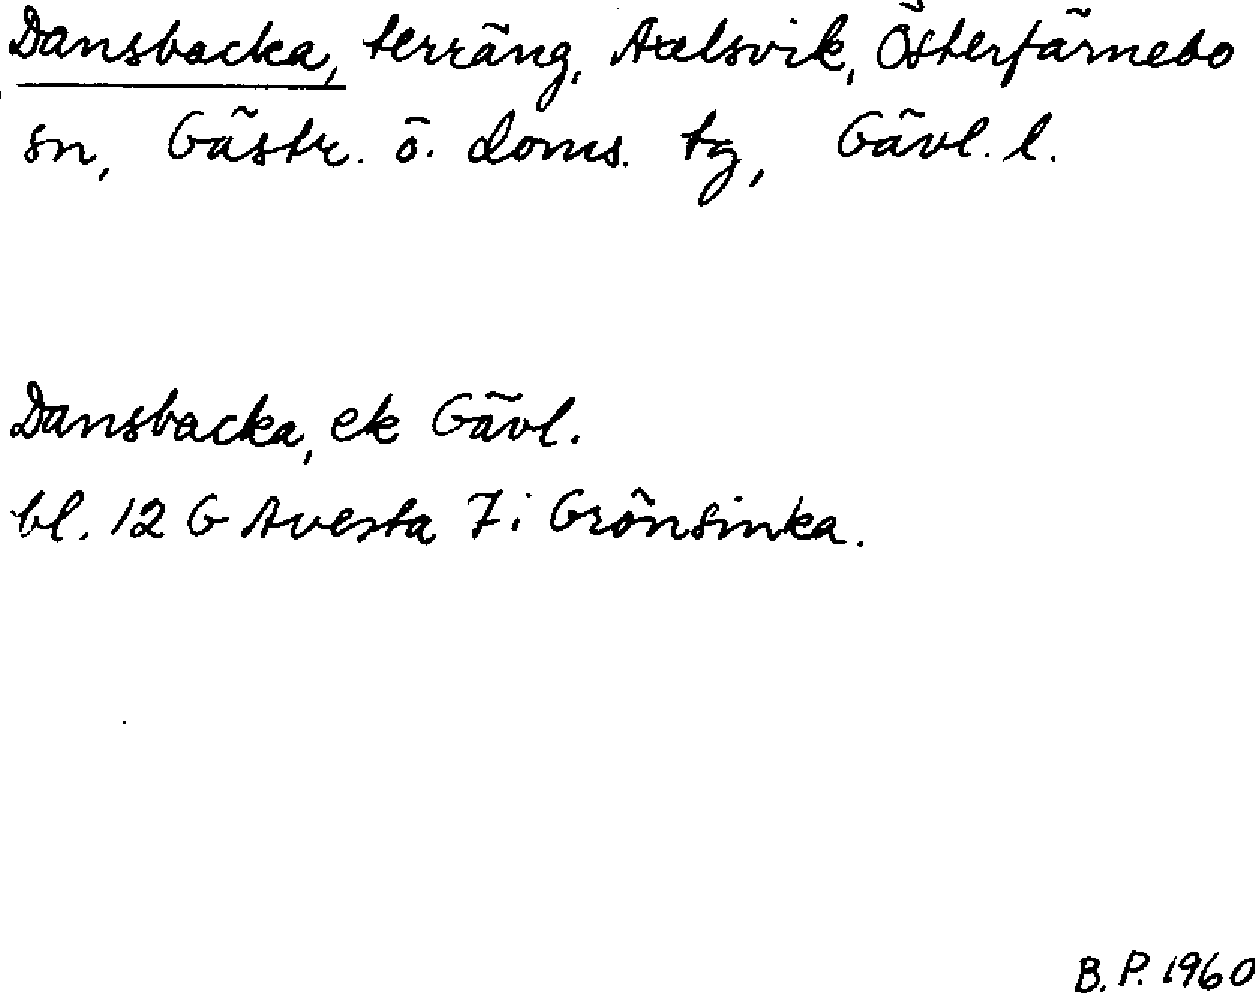 Dansbacka, terräng, Axelsvik, Österfärnebo
sn, Gästr. ö. doms. tg, Gävl. l.
Dansbacka, ek Gävl.
bl. 12 G Avesta 7i Grönsinka.
B. P. 1960